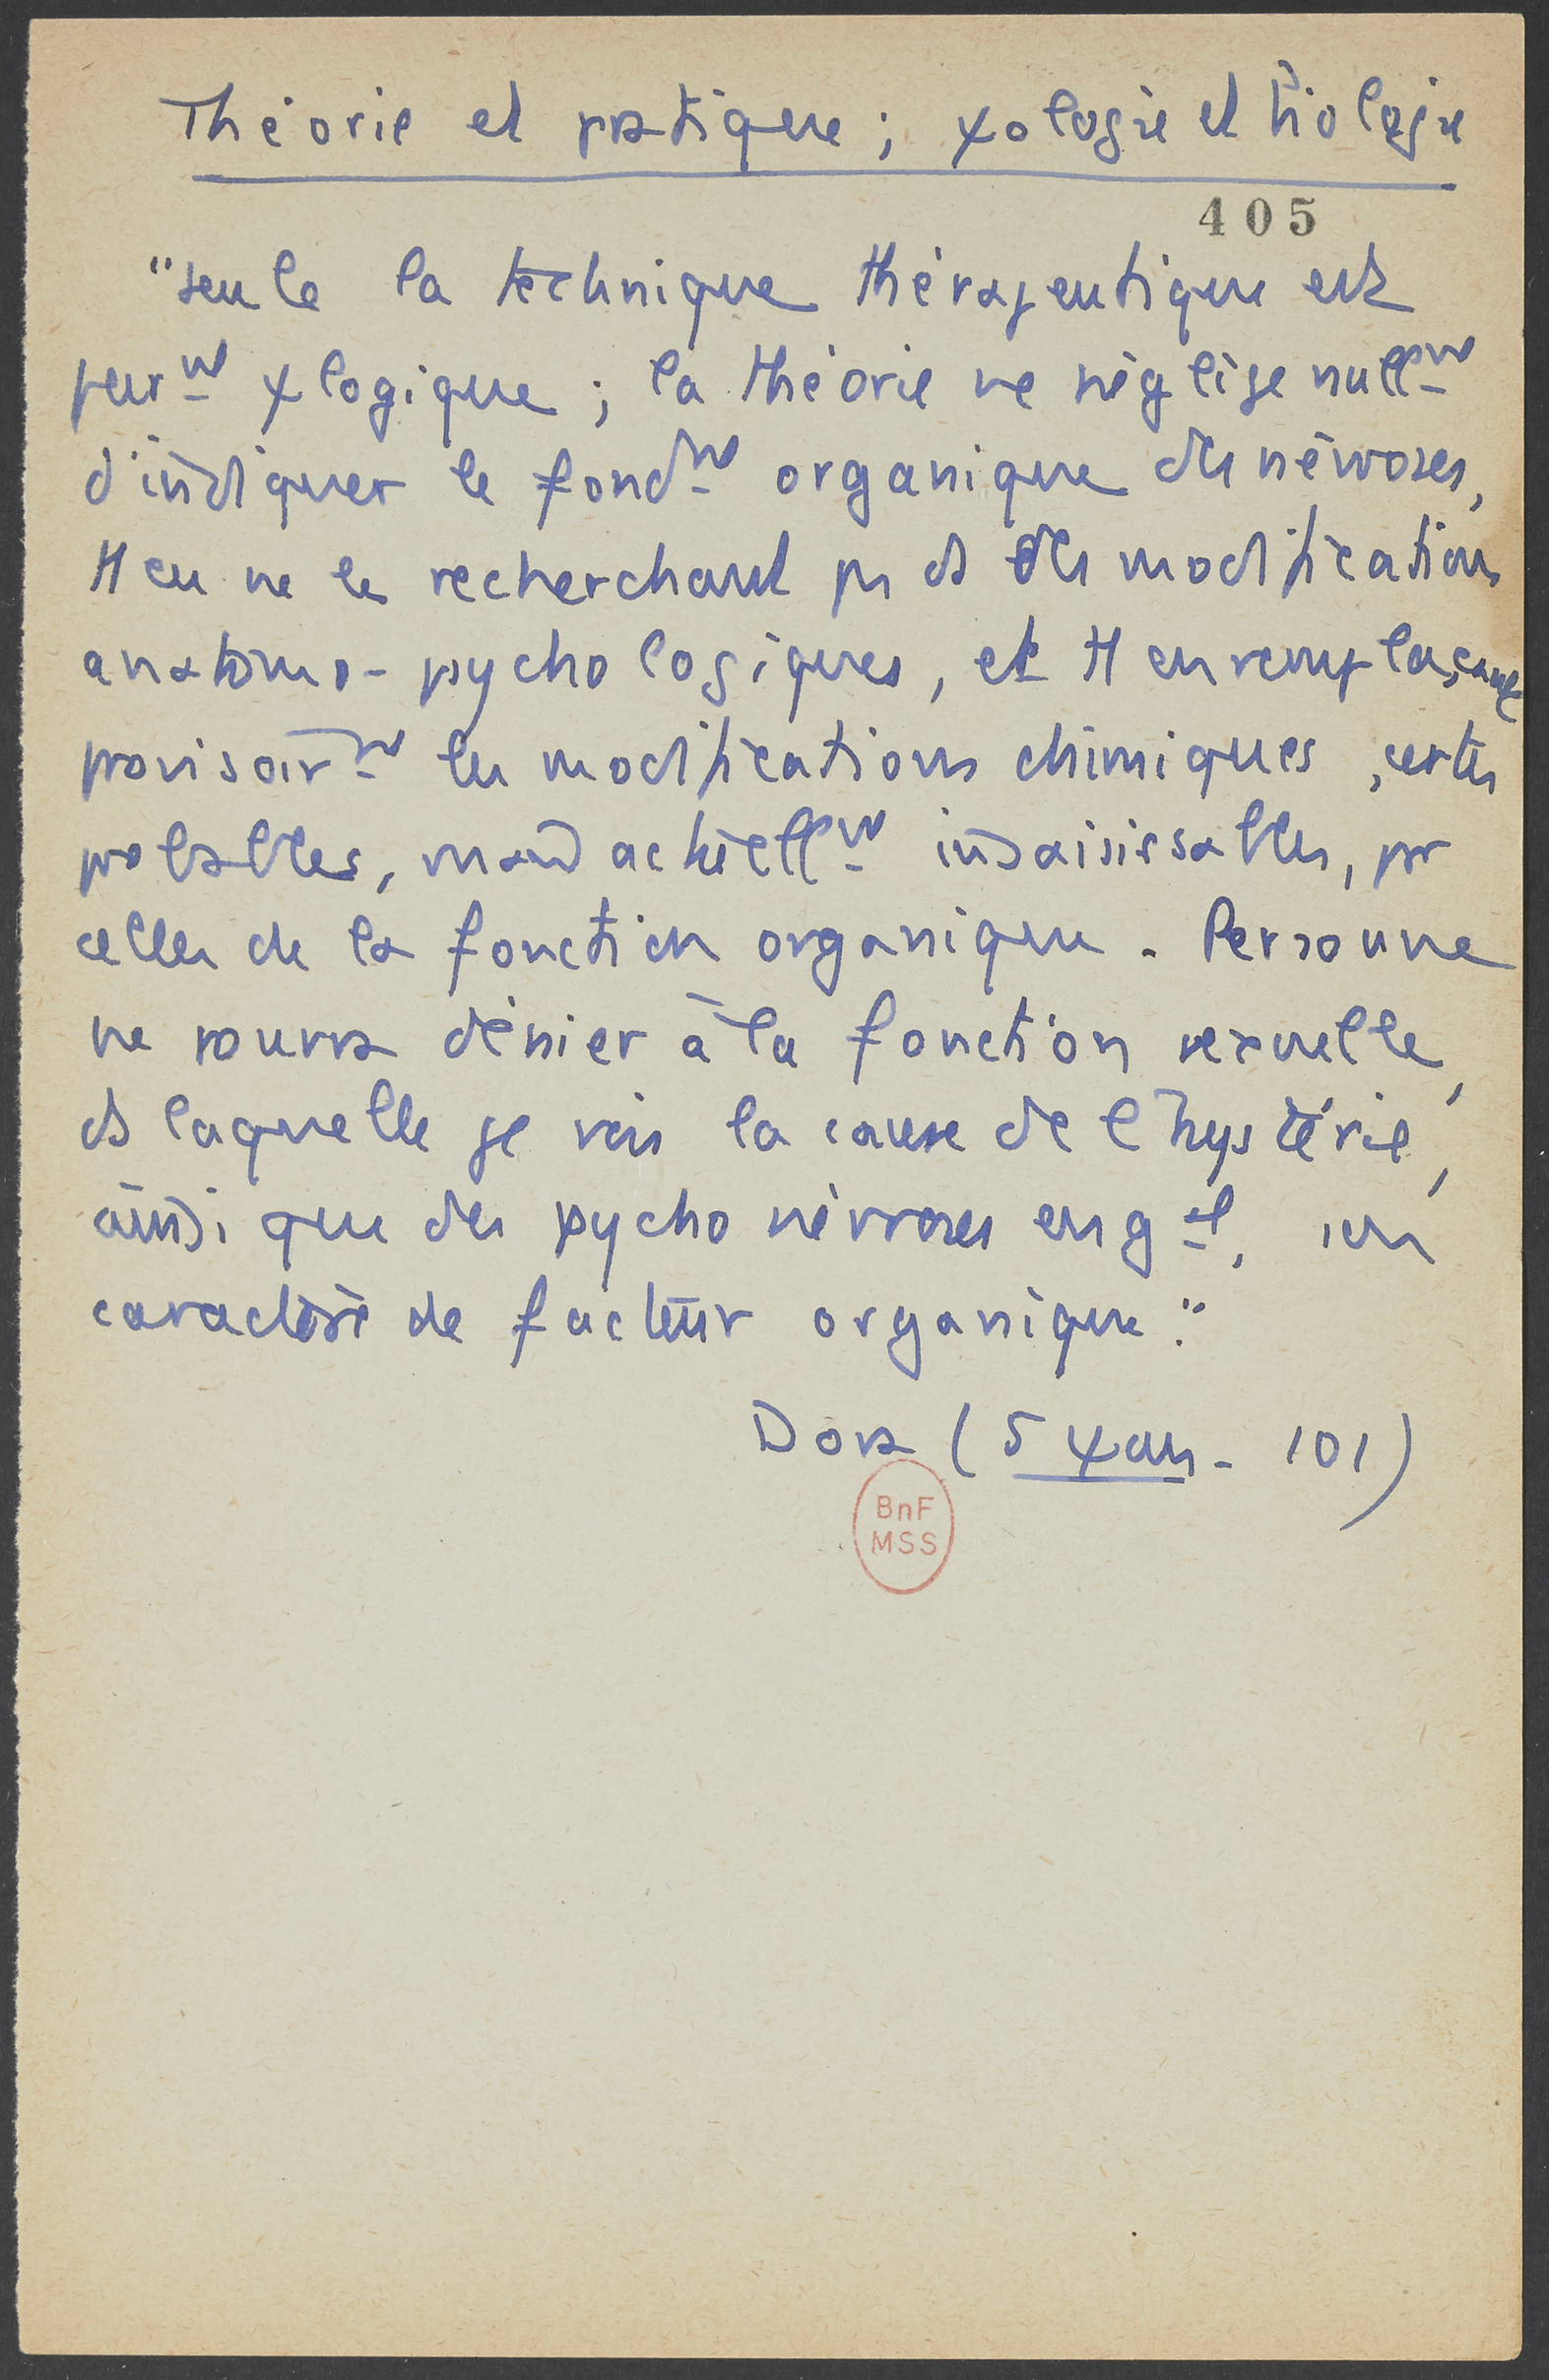 Théorie et pratique ; ψologie et biologie
405
"seule la technique thérapeutique est
pur^mt ψlogique ; la théorie ne néglige null^mt
d'indiquer le fond^mt organique des névroses,
tt en ne le recherchant pas ds des modifications
anatomo-psychologiques, et tt en remplaçant
provisoir^mt les modifications chimiques, certes
probables, mais actuell^mt insaisissables, par
celles de la fonction organique. Personne
ne pourra dénier à la fonction sexuelle,
ds laquelle je vois la cause de l'hystérie,
ainsi que des psychonévroses en g^al, son
caractère de facteur organique."
Dora (5 ψan. 101)
BnF
MSS